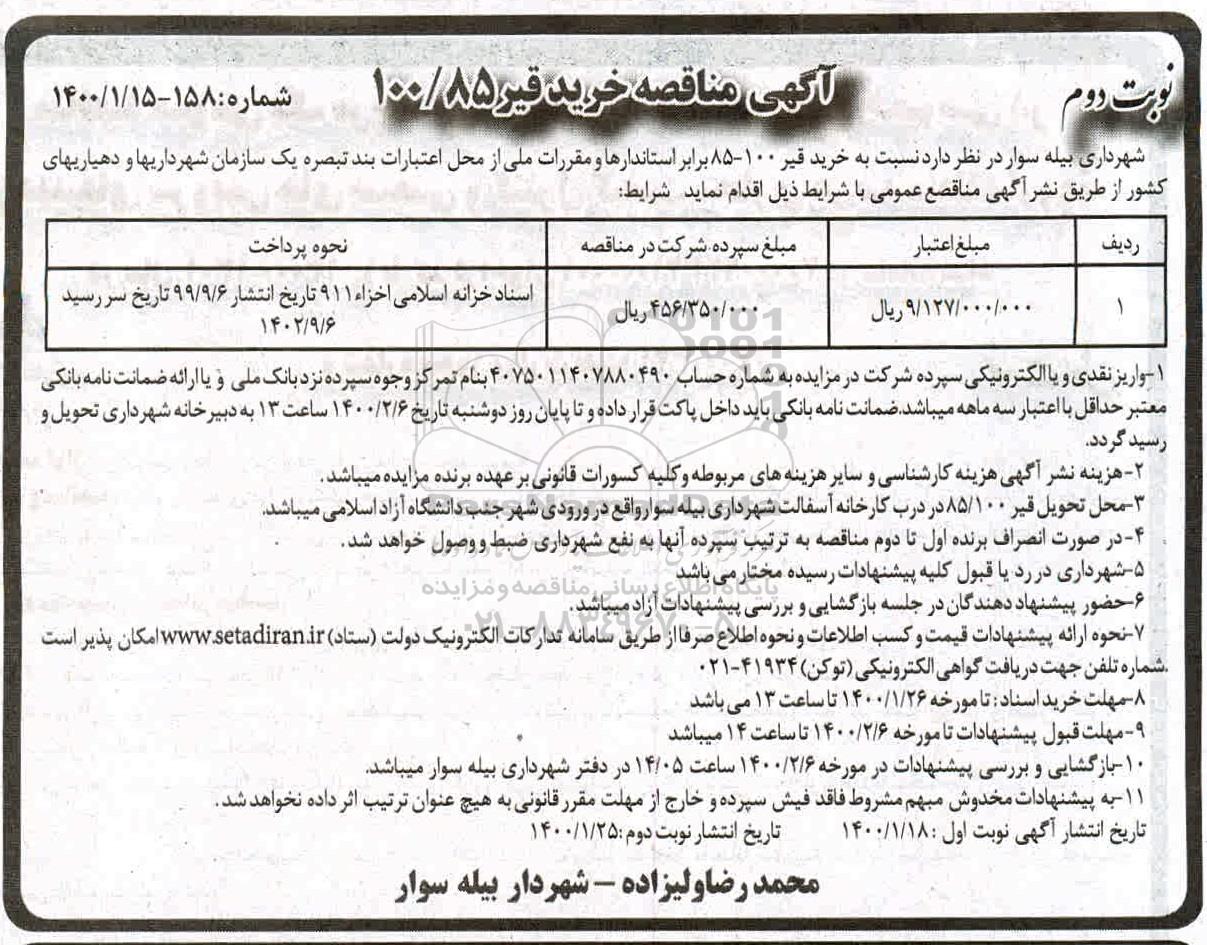 نوبت دوم
آگهی مناقصه خرید قیر ۱۰۰/۸۵
شماره:۱۵۸-۱۴۰۰/۱/۱۵
شهرداری بیله سوار در نظر دارد نسبت به خرید قیر ۱۰۰-۸۵ برابر استاندارها و مقررات ملی از محل اعتبارات بند تبصره یک سازمان شهرداریها و دهیاریهای
کشور از طریق نشر آگهی مناقصع عمومی با شرایط ذیل اقدام نماید شرایط:
ردیف مبلغ اعتبار مبلغ سپرده شرکت در مناقصه نحوه پرداخت
۱ ۹/۱۲۷/۰۰۰/۰۰۰ ریال ۴۵۶/۳۵۰/۰۰۰ ریال اسناد خزانه اسلامی اخزاء ۹۱۱ تاریخ انتشار ۹۹/۹/۶ تاریخ سر رسید
۱۴۰۲/۹/۶
۱-واریز نقدی و یا الکترونیکی سپرده شرکت در مزایده به شماره حساب ۴۰۷۵۰۱۱۴۰۷۸۸۰۴۹۰ بنام تمرکز وجوه سپرده نزد بانک ملی و یا ارائه ضمانت نامه بانکی
معتبر حداقل با اعتبار سه ماهه میباشد.ضمانت نامه بانکی باید داخل پاکت قرار داده و تا پایان روز دوشنبه تاریخ ۱۴۰۰/۲/۶ ساعت ۱۳ به دبیرخانه شهرداری تحویل و
رسید گردد.
۲-هزینه نشر آگهی هزینه کارشناسی و سایر هزینه های مربوطه و کلیه کسورات قانونی بر عهده برنده مزایده میباشد.
۳-محل تحویل قیر ۸۵/۱۰۰ در درب کارخانه آسفالت شهرداری بیله سوار واقع در ورودی شهر جنب دانشگاه آزاد اسلامی میباشد.
۴-در صورت انصراف برنده اول تا دوم مناقصه به ترتیب سپرده آنها به نفع شهرداری ضبط و وصول خواهد شد.
۵-شهرداری در رد یا قبول کلیه پیشنهادات رسیده مختار می باشد
۶-حضور پیشنهاد دهندگان در جلسه بازگشایی و بررسی پیشنهادات آزاد میباشد.
۷-نحوه ارائه پیشنهادات قیمت و کسب اطلاعات و نحوه اطلاع صرفا از طریق سامانه تدارکات الکترونیک دولت (ستاد) www.setadiran.ir امکان پذیر است
شماره تلفن جهت دریافت گواهی الکترونیکی (توکن) ۴۱۹۳۴-۰۲۱
۸-مهلت خرید اسناد: تا مورخه ۱۴۰۰/۱/۲۶ تا ساعت ۱۳ می باشد
۹-مهلت قبول پیشنهادات تا مورخه ۱۴۰۰/۲/۶ تا ساعت ۱۴ میباشد
۱۰-بازگشایی و بررسی پیشنهادات در مورخه ۱۴۰۰/۲/۶ ساعت ۱۴/۰۵ در دفتر شهرداری بیله سوار میباشد.
۱۱-به پیشنهادات مخدوش مبهم مشروط فاقد فیش سپرده و خارج از مهلت مقرر قانونی به هیچ عنوان ترتیب اثر داده نخواهد شد.
تاریخ انتشار آگهی نوبت اول :۱۴۰۰/۱/۱۸ تاریخ انتشار نوبت دوم:۱۴۰۰/۱/۲۵
محمد رضا ولیزاده – شهردار بیله سوار
ParsNamadData
پایگاه اطلاع رسانی مناقصه و مزایده
۰۲۱-۸۸۳۴۹۶۷۰-۵